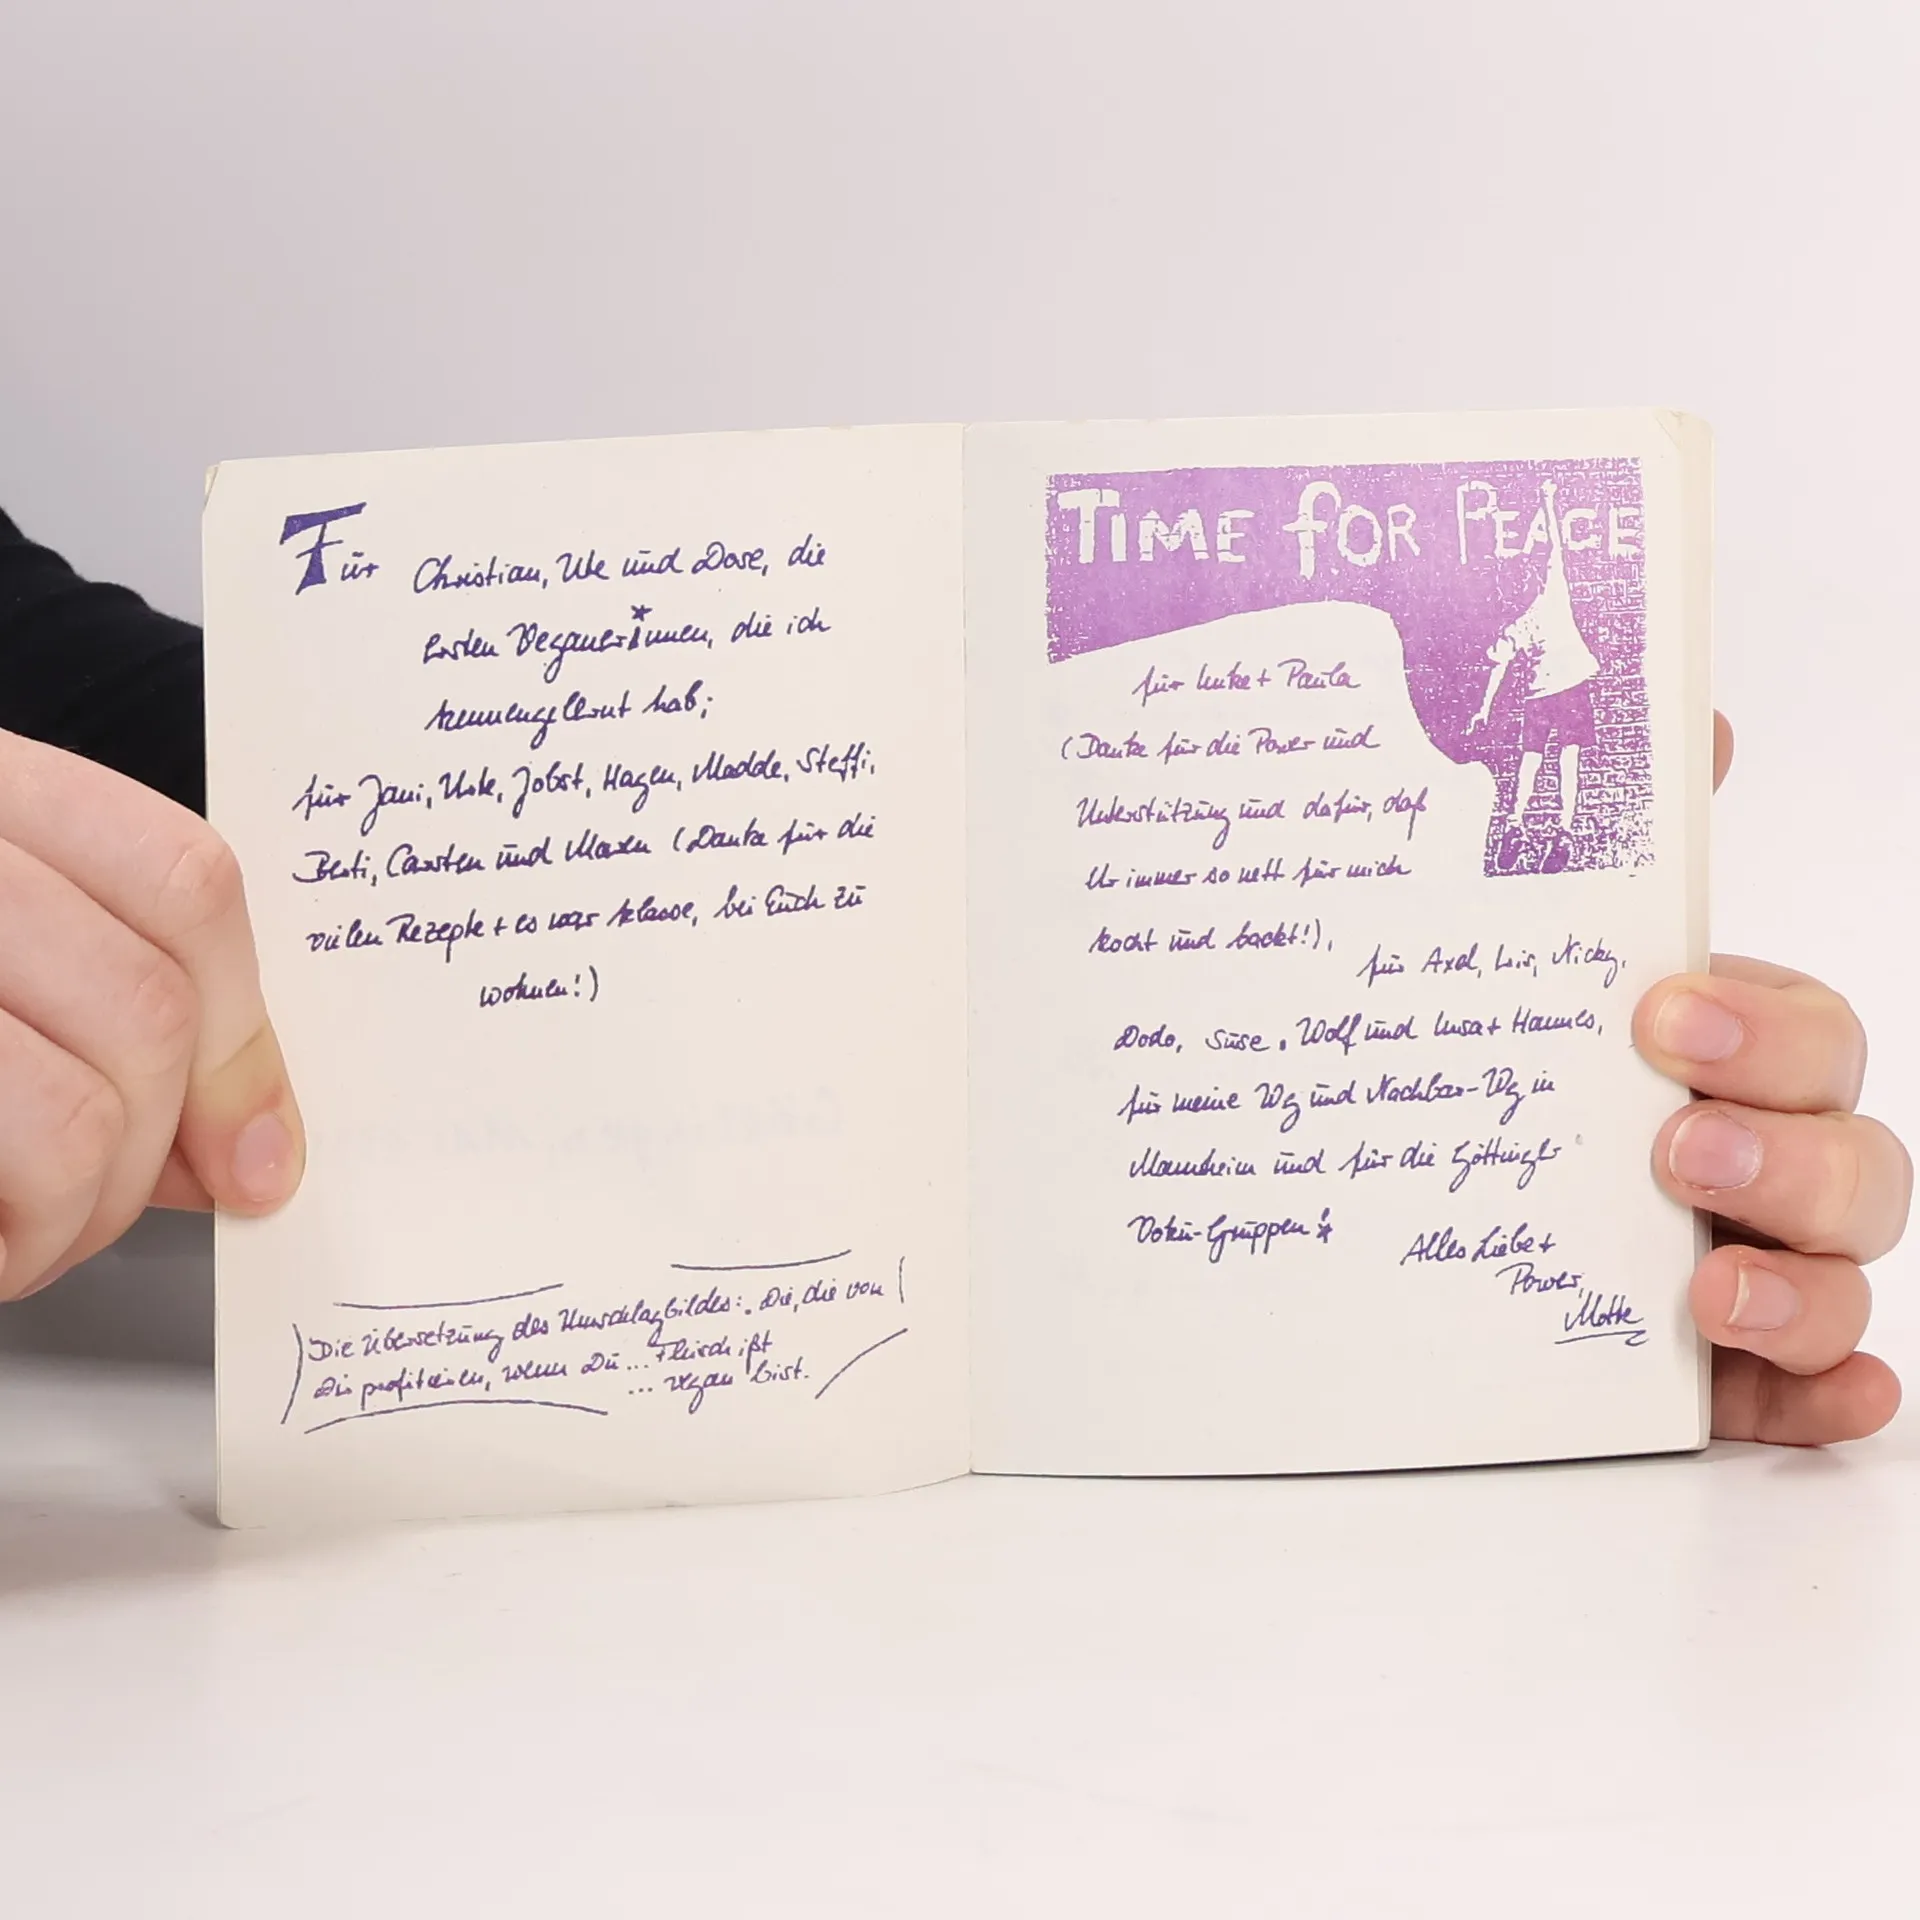 Für Christian, Ute und Dose, die
ersten VeganerInnen, die ich
kennengelernt hab;
für Jani, Urte, Jobst, Hagen, Madde, Steffi,
Berti, Carsten und Maren (Danke für die
vielen Rezepte + es war klasse, bei Euch zu
wohnen!)
(Die Übersetzung des Umschlagbildes: „Die, die von
Dir profitieren, wenn Du ... Fleisch ißt
... vegan bist.)
TIME FOR PEACE
für Imke + Paula
(Danke für die Power und
Unterstützung und dafür, daß
Ihr immer so nett für mich
kocht und backt!),
für Axel, Iris, Nicky,
Dodo, Suse, Wolf und Insa + Hannes,
für meine Wg und Nachbar-Wg in
Mannheim und für die Göttinger
Vokü-Gruppen!
Alles Liebe +
Power,
Motte